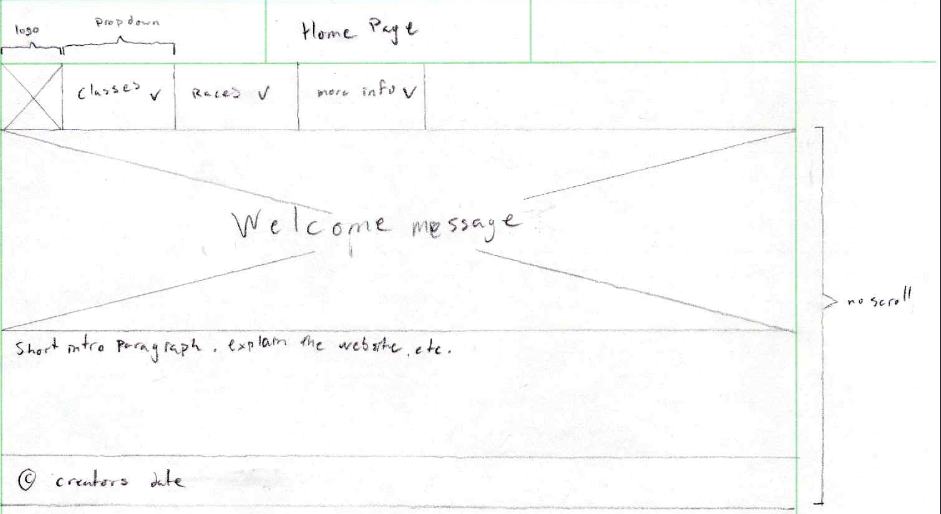 logo
Dropdown
Home Page
Classes
Races
more info
Welcome message
no scroll
Short intro Paragraph, explain the website, etc.
© creators date